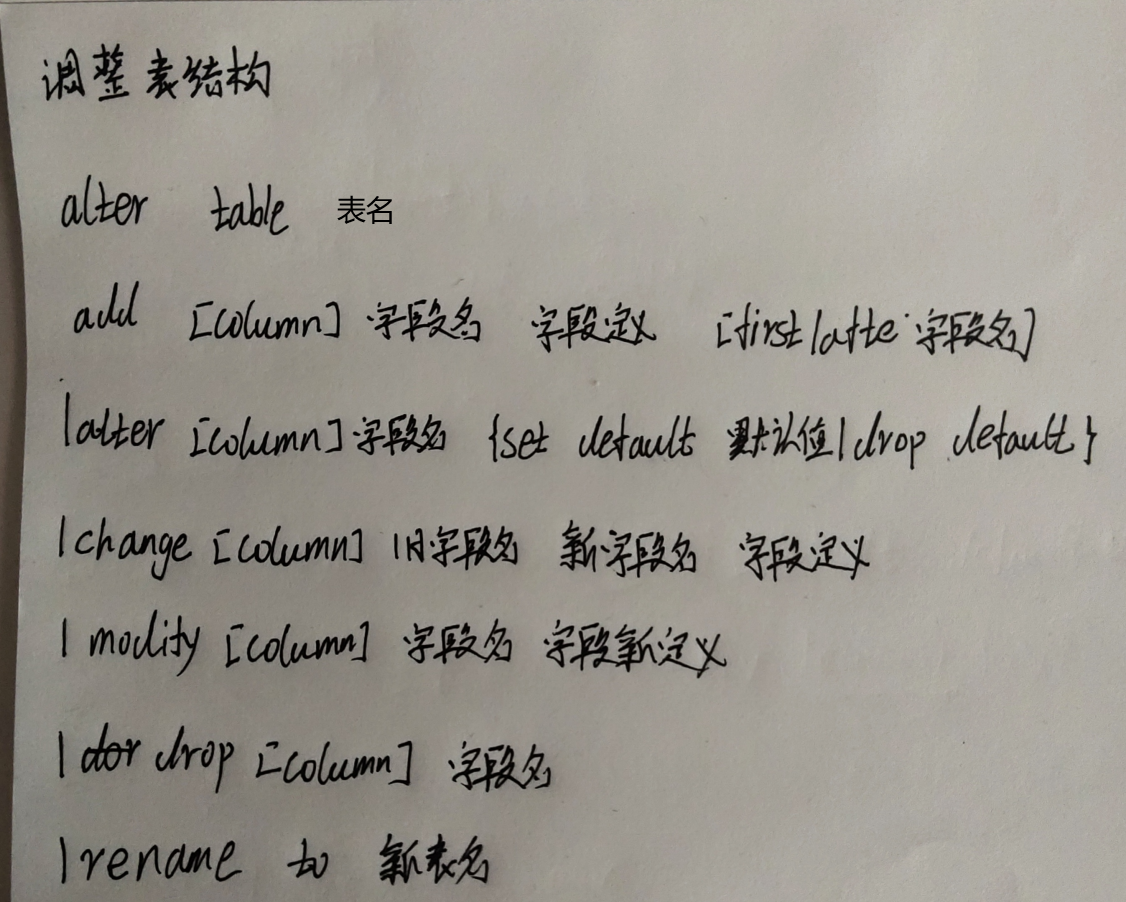 调整表结构
alter table 表名
add [column] 字段名 字段定义 [first|afte 字段名]
|alter [column] 字段名 {set default 默认值|drop default}
|change [column] 旧字段名 新字段名 字段定义
| modify [column] 字段名 字段新定义
| dor drop [column] 字段名
|rename to 新表名